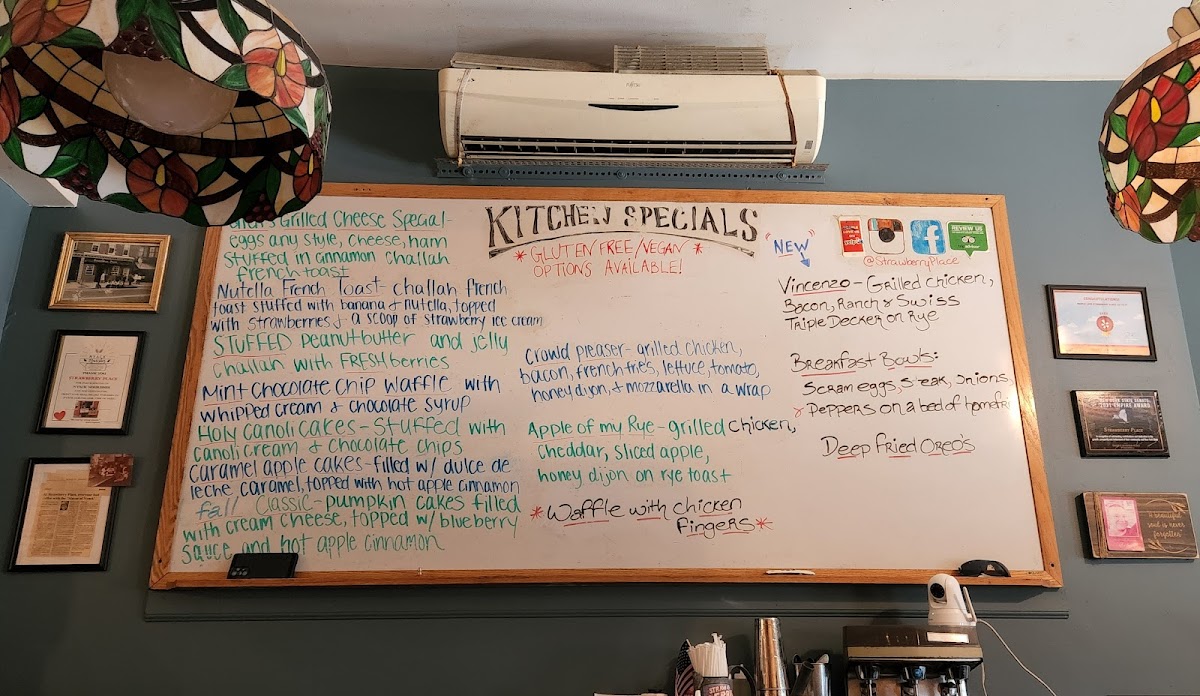 Grilled Cheese Special-
eggs any style, cheese, ham
stuffed in cinnamon challah
french toast
Nutella French Toast- challah french
toast stuffed with banana & nutella, topped
with strawberries & a scoop of strawberry ice cream
STUFFED peanutbutter and jelly
challah with FRESH berries
Mint chocolate chip waffle with
whipped cream & chocolate syrup
Holy canoli cakes- stuffed with
canoli cream & chocolate chips
caramel apple cakes-filled w/ dulce de
leche caramel, topped with hot apple cinnamon
fall classic-pumpkin cakes filled
with cream cheese, topped w/ blueberry
sauce and hot apple cinnamon
KITCHEN SPECIALS
*GLUTEN FREE/VEGAN *
OPTIONS AVAILABLE!
crowd pleaser- grilled chicken,
bacon, french fries, lettuce, tomato,
honey dijon, & mozzarella in a wrap
Apple of my Rye-grilled chicken,
cheddar, sliced apple,
honey dijon on rye toast
*Waffle with chicken
fingers*
"NEW"
REVIEW US
@StrawberryPlace
Vincenzo- Grilled chicken,
Bacon, Ranch & Swiss
Triple Decker on Rye
Breakfast Bowls:
Scram eggs, steak, onions,
Peppers on a bed of homefri
Deep Fried Oreo's
FUJITSU
STRAWBERRY PLACE
2021 EMPIRE AWARD
STRAWBERRY PLACE
A beautiful
soul is never
forgotten